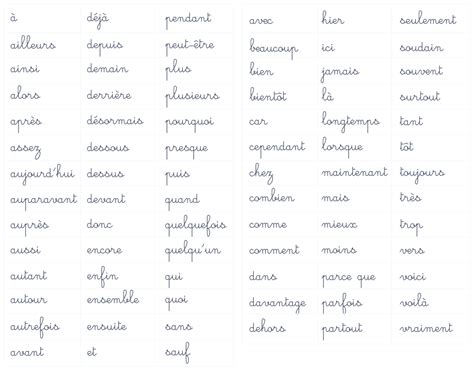 à déjà pendant
ailleurs depuis peut-être
ainsi demain plus
alors derrière plusieurs
après désormais pourquoi
assez dessous presque
aujourd'hui dessus puis
auparavant devant quand
auprès donc quelquefois
aussi encore quelqu'un
autant enfin qui
autour ensemble quoi
autrefois ensuite sans
avant et sauf
avec hier seulement
beaucoup ici soudain
bien jamais souvent
bientôt là surtout
car longtemps tant
cependant lorsque tôt
chez maintenant toujours
combien mais très
comme mieux trop
comment moins vers
dans parce que voici
davantage parfois voilà
dehors partout vraiment